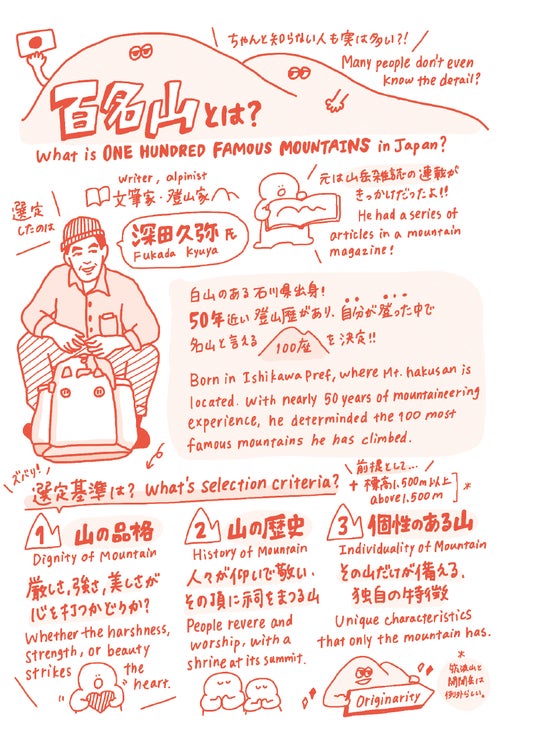 ちゃんと知らない人も実は多い?!
Many people don't even
know the detail?
百名山とは?
What is ONE HUNDRED FAMOUS MOUNTAINS in Japan?
選定
したのは
writer, alpinist
文筆家・登山家
深田久弥 氏
Fukada Kyuya
元は山岳雑誌の連載が
きっかけだったよ!!
He had a series of
articles in a mountain
magazine!
白山のある石川県出身!
50年近い登山歴があり、自分が登った中で
名山と言える 100座 を決定!!
Born in Ishikawa Pref, where Mt. hakusan is
located. With nearly 50 years of mountaineering
experience, he determinded the 100 most
famous mountains he has climbed.
ズバリ!
選定基準は? What's selection criteria?
前提として…
+ 標高1,500m以上
above 1,500 m
*
1 山の品格
Dignity of Mountain
厳しさ、強さ、美しさが
心を打つかどうか?
Whether the harshness,
strength, or beauty
strikes the
heart.
2 山の歴史
History of Mountain
人々が仰いで敬い、
その頂に祠をまつる山
People revere and
worship, with a
shrine at its summit.
3 個性のある山
Individuality of Mountain
その山だけが備える、
独自の特徴
Unique characteristics
that only the mountain has.
Originarity
*
筑波山と
開聞岳は
例外らしい。